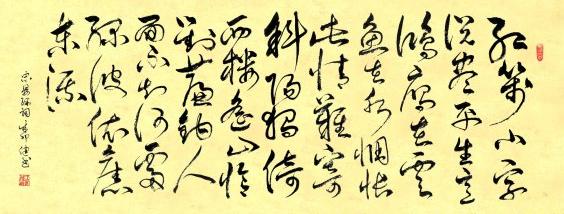 紅箋小字
說盡平生意
鴻雁在雲
魚在水惆悵
此情難寄
斜陽獨倚
西樓遙山恰
對簾鉤人
面不知何處
綠波依舊
東流
宋晏殊詞